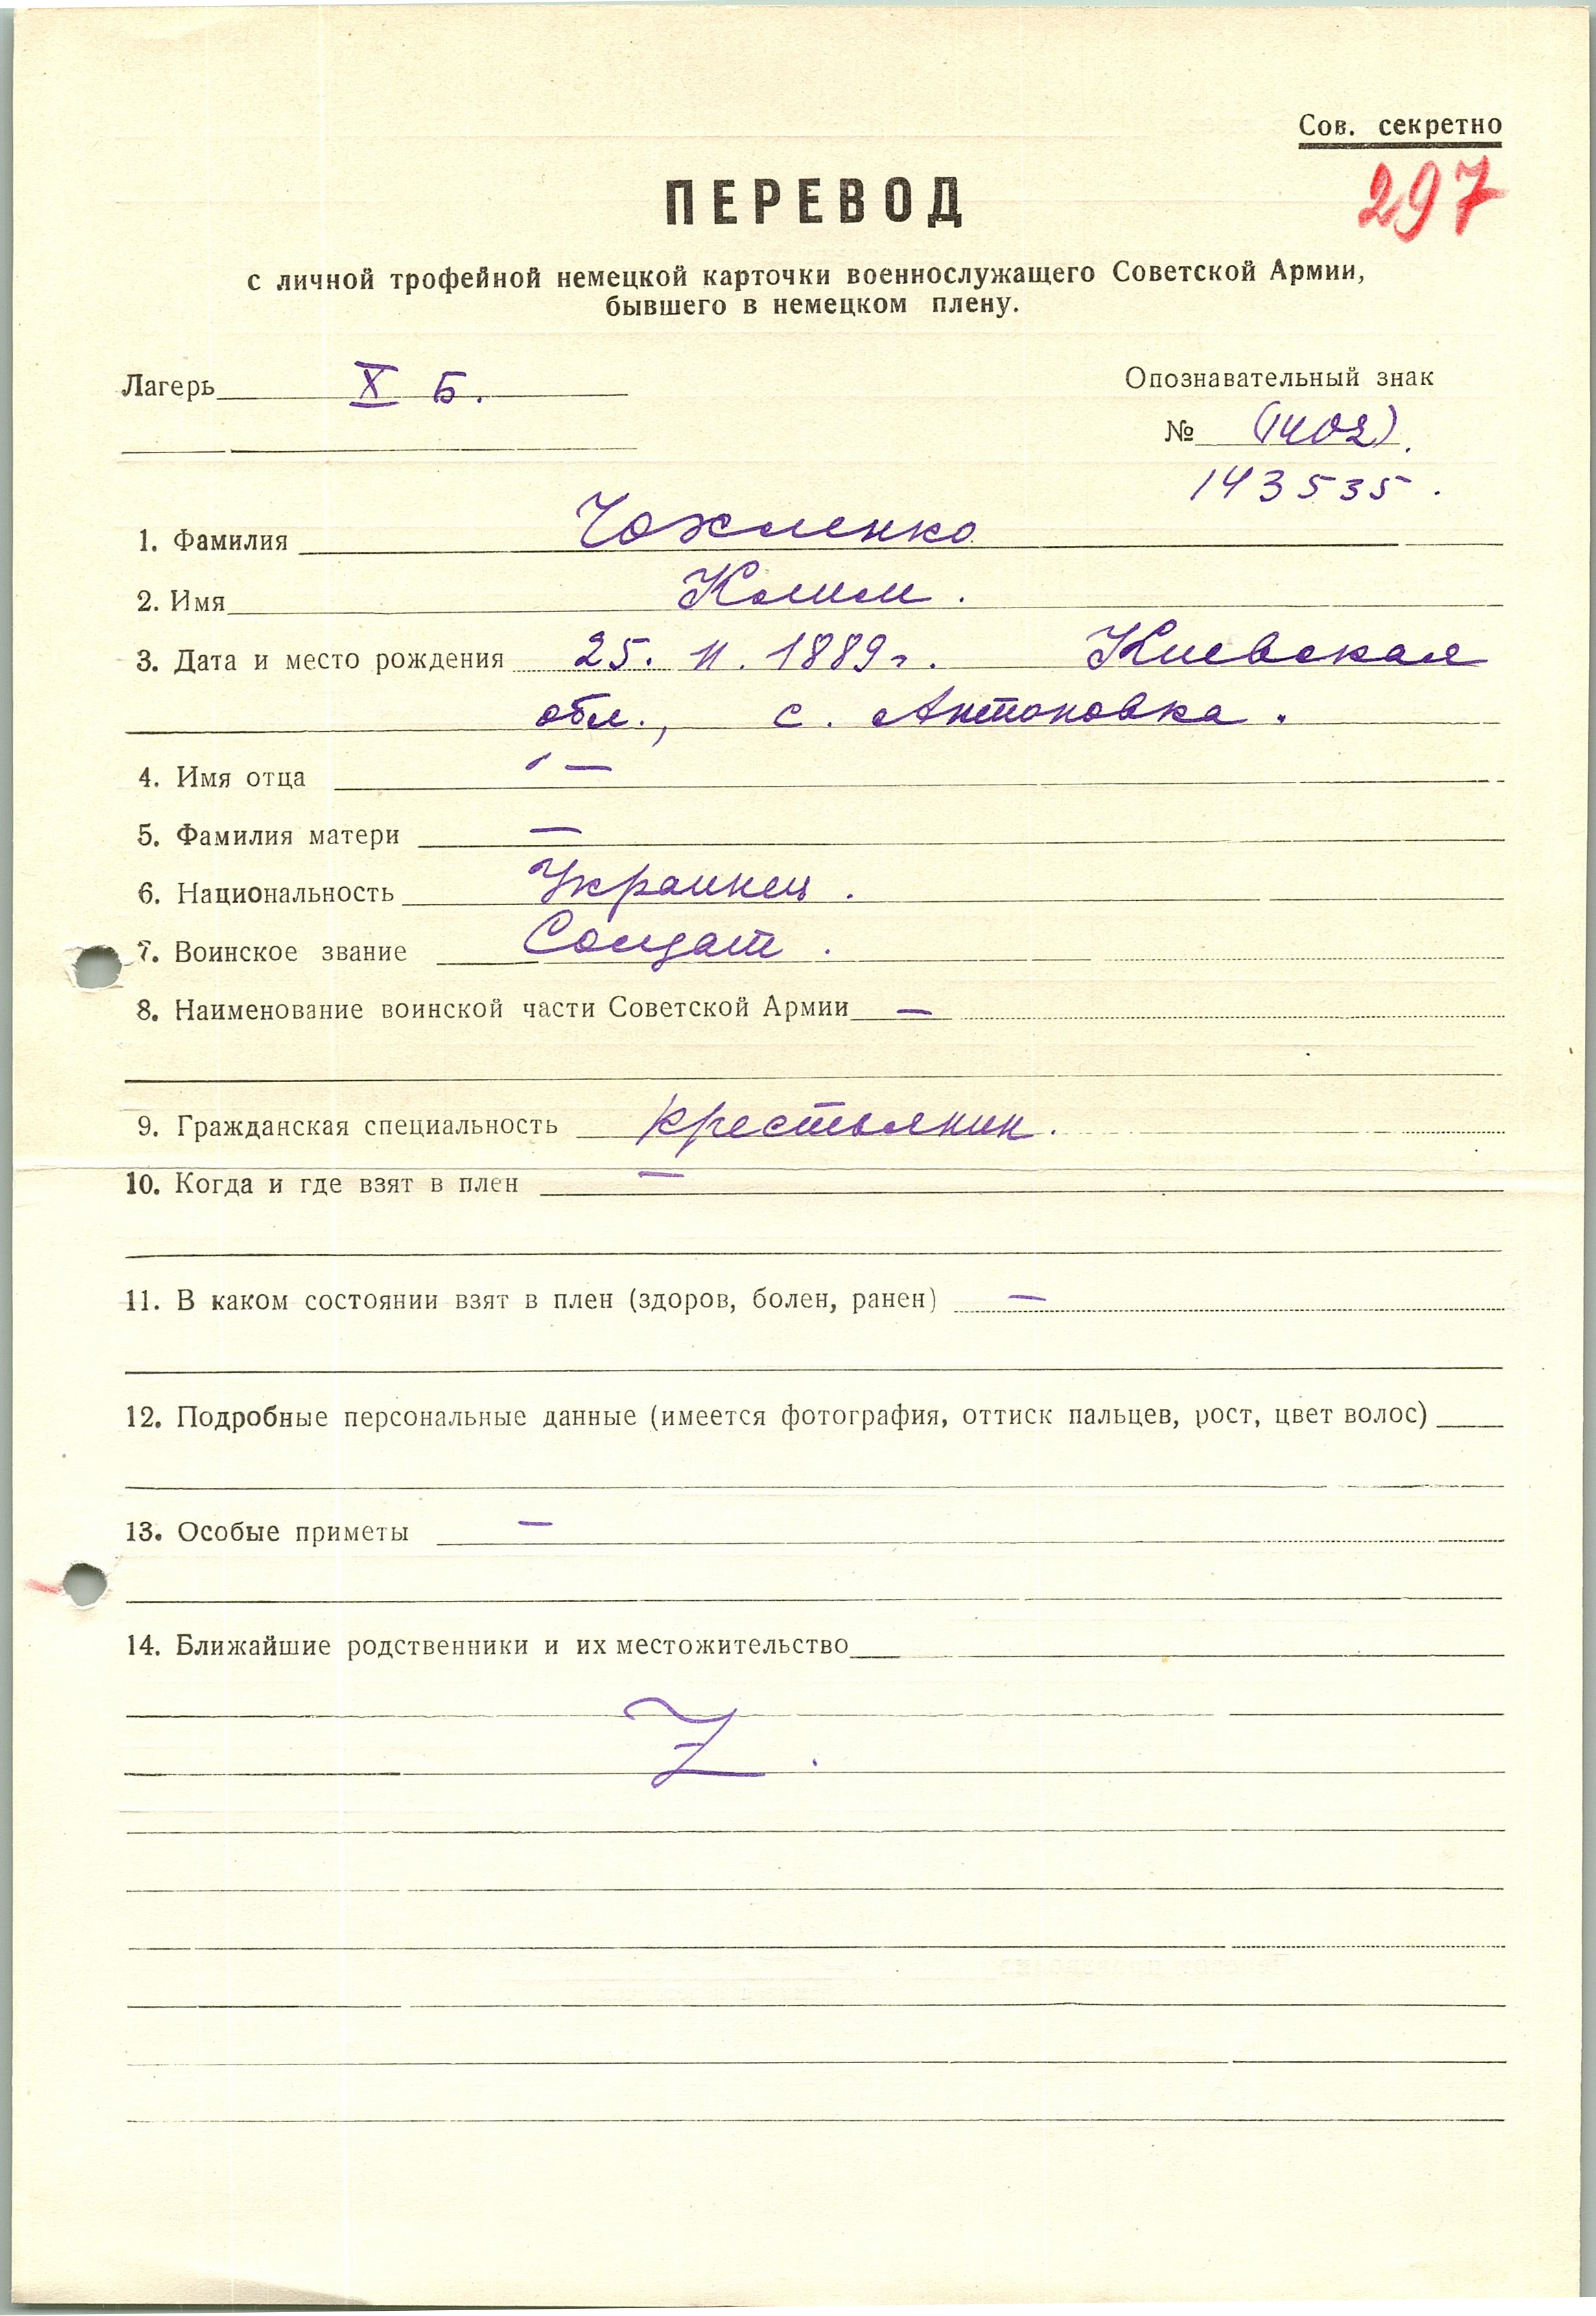 Сов. секретно
297
ПЕРЕВОД
с личной трофейной немецкой карточки военнослужащего Советской Армии,
бывшего в немецком плену.
Лагерь X Б.
Опознавательный знак
№ (1402).
143535.
1. Фамилия
2. Имя
3. Дата и место рождения 25. II. 1889г. Киевская
обл., с. Антоновка.
4. Имя отца —
5. Фамилия матери —
6. Национальность Украинец.
7. Воинское звание Солдат.
8. Наименование воинской части Советской Армии —
9. Гражданская специальность крестьянин.
10. Когда и где взят в плен —
11. В каком состоянии взят в плен (здоров, болен, ранен) —
12. Подробные персональные данные (имеется фотография, оттиск пальцев, рост, цвет волос)
13. Особые приметы —
14. Ближайшие родственники и их местожительство
Z.